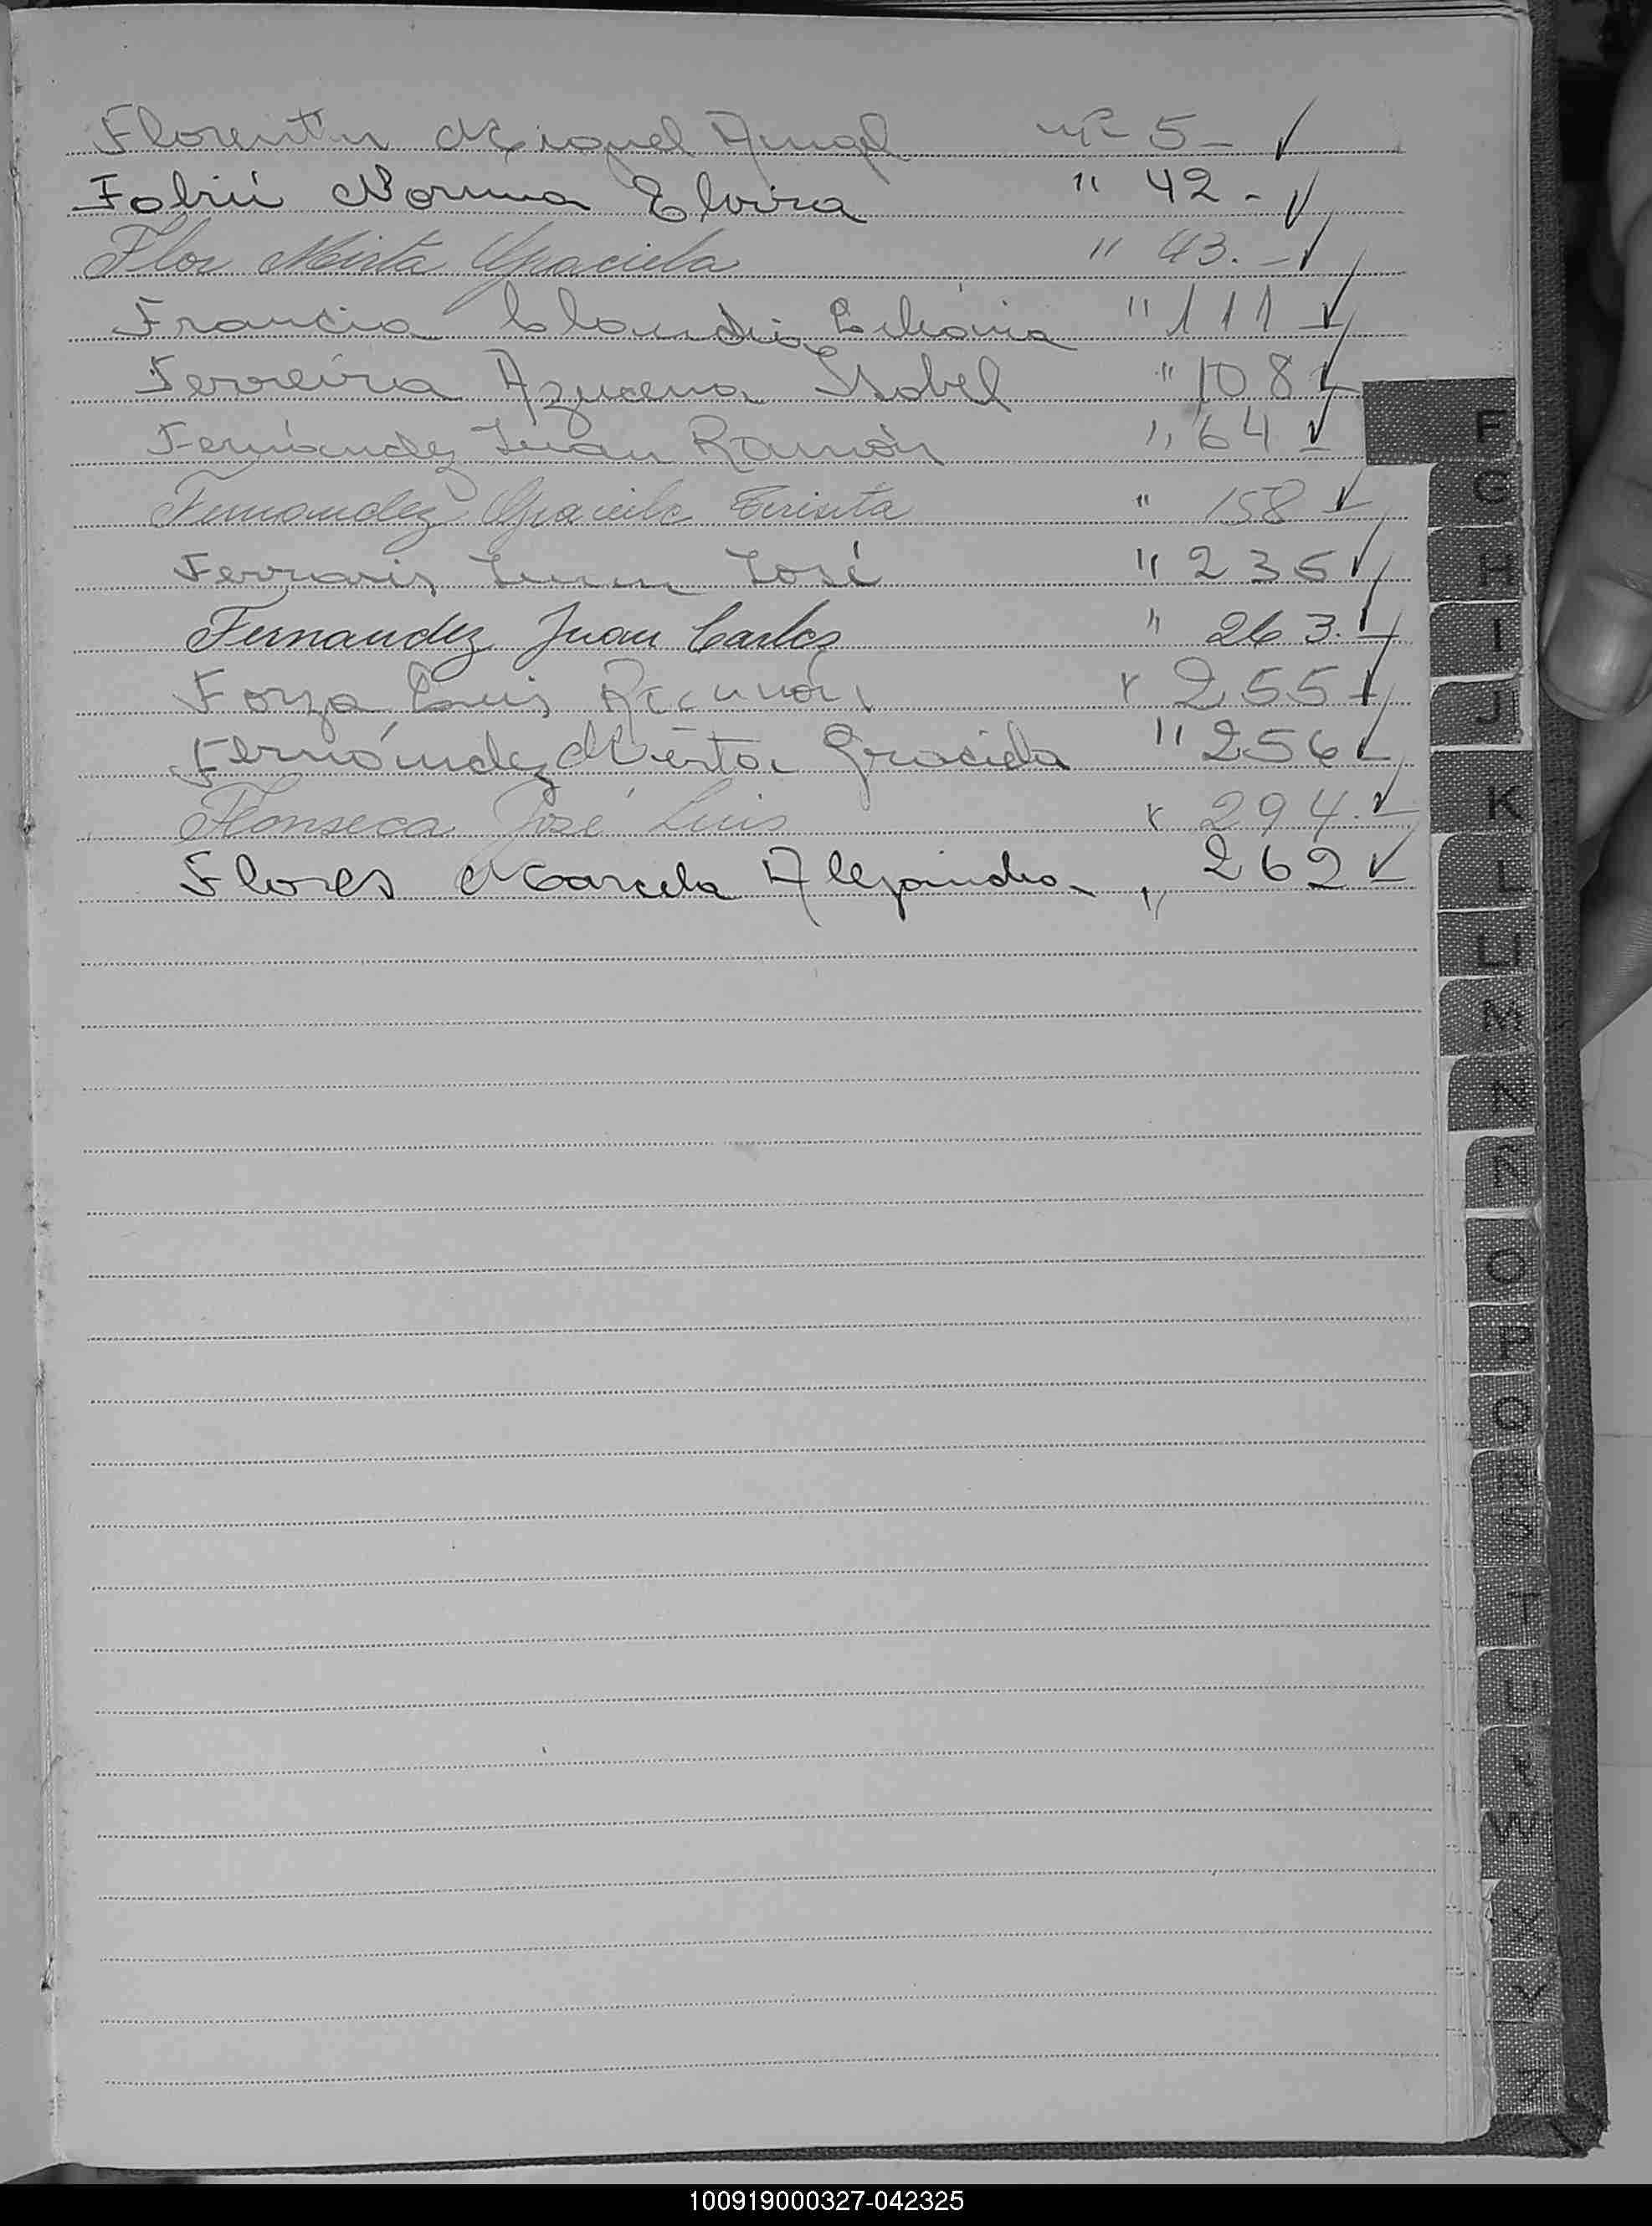 Florentín Miguel Angel nº 5 - ✓
Fabrii Norma Elvira " 42 - ✓
Flor Mirta Graciela " 43. - ✓
Francia Claudia " 111 - ✓
Ferreira Azucena Isabel " 108 - ✓
Fernández Juan Ramón " 64 - ✓
Fernandez Graciela Teresita " 158 - ✓
Ferraris Juan José " 235 ✓
Fernandez Juan Carlos " 263. - ✓
Forza Luis Ramón " 255 - ✓
Fernández Mirta Graciela " 256 - ✓
Fonseca José Luis " 294. - ✓
Flores Marcela Alejandra " 262 - ✓
F
G
H
I
J
K
L
LL
M
N
Ñ
O
P
Q
R
S
T
U
V
W
X
Y
Z
100919000327-042325